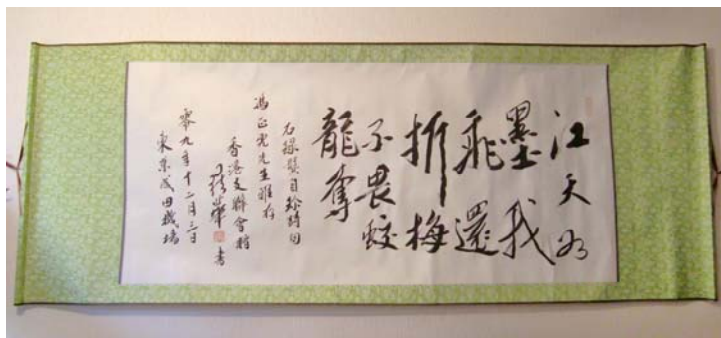 江天如
墨我
飛還
折梅
不畏蛟
龍奪
右錄龔自珍詩句
馮正虎先生雅存
香港支聯會贈
司徒華 書
零九年十二月三日
東京成田機場